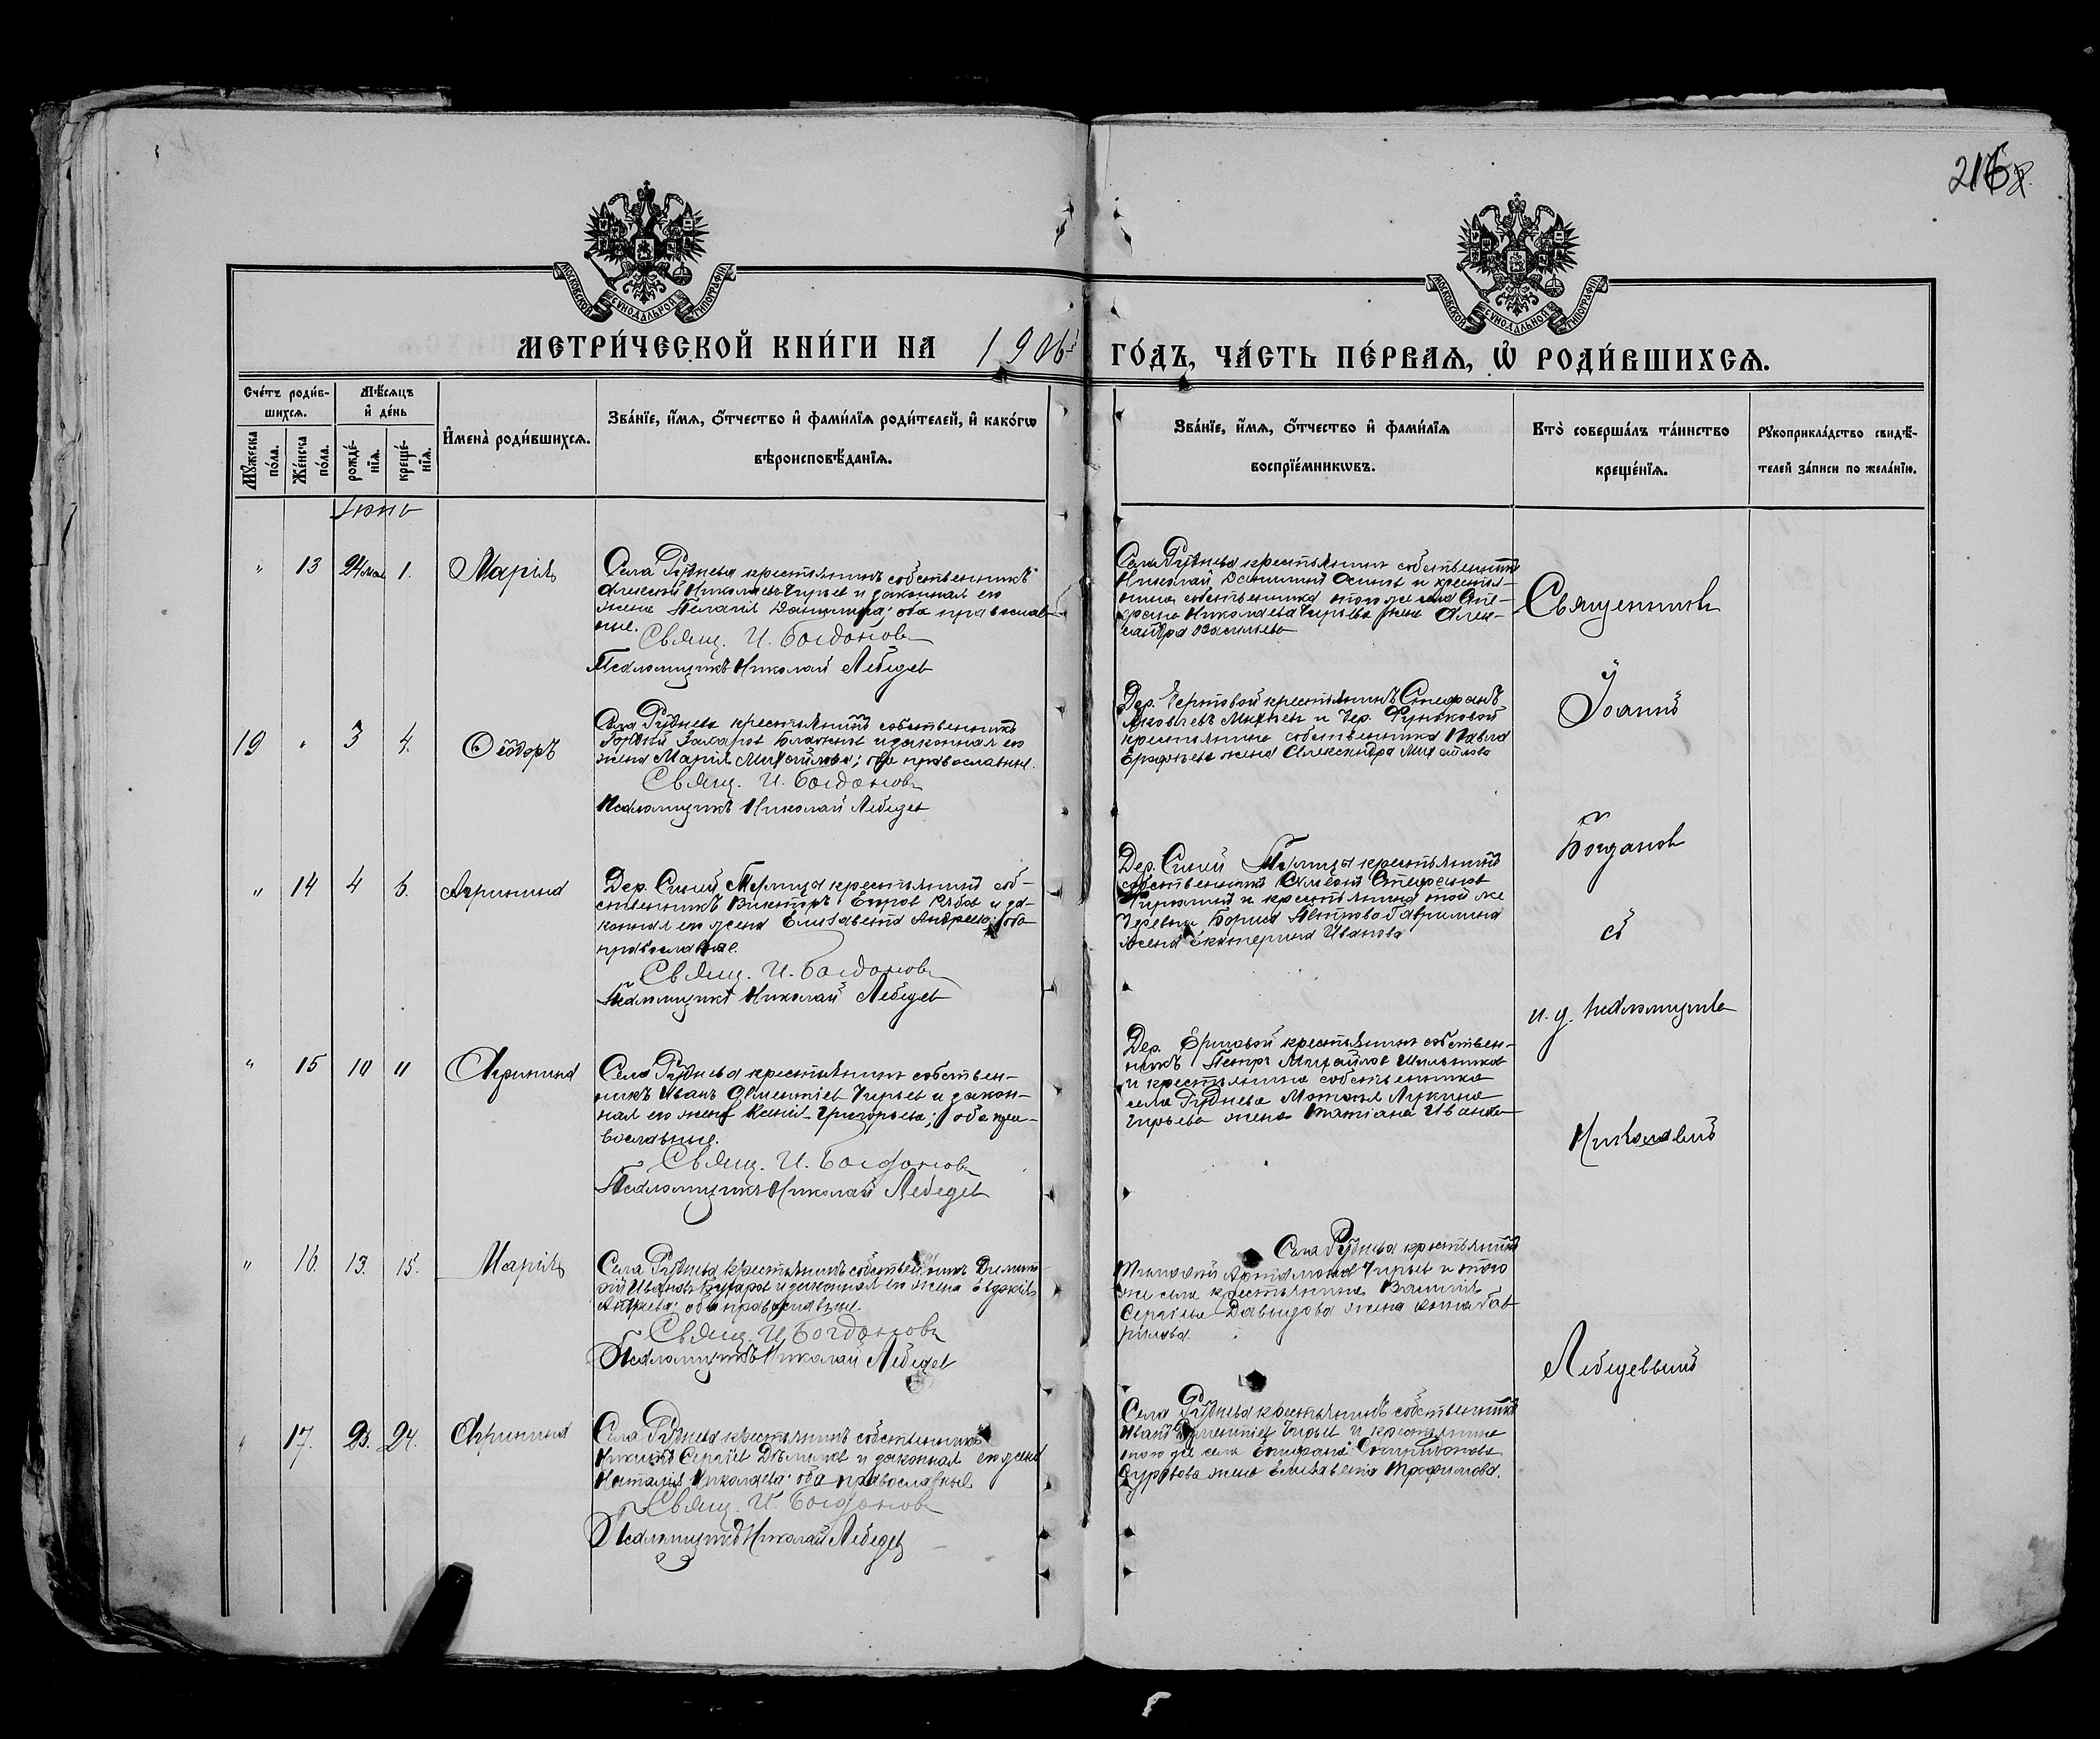 216
МОСКОВСКОЙ СѴНОДАЛЬНОЙ ТИПОГРАФІИ
МОСКОВСКОЙ СѴНОДАЛЬНОЙ ТИПОГРАФІИ
МЕТРИ́ЧЕСКОЙ КНИ́ГИ НА 1906 ГО́ДЪ, ЧА́СТЬ ПЕ́РВАѦ, Ѽ РОДИ́ВШИХСѦ.
Сче́тъ роди́в-
шихсѧ.
Мꙋ́жеска по́ла.
Же́нска по́ла.
Мѣ́сѧцъ
и҆ де́нь
рожде́-
нїѧ.
креще́-
нїѧ.
И҆мена̀ роди́вшихсѧ.
Зва́нїе, и҆́мѧ, ѻ҆́тчество и҆ фами́лїѧ роди́телей, и҆ како́гѡ
вѣроисповѣ́данїѧ.
Зва́нїе, и҆́мѧ, ѻ҆́тчество и҆ фами́лїѧ
воспрїе́мникѡвъ.
Кто̀ соверша́лъ та́инство
креще́нїѧ.
Рꙋкоприкла́дство свидѣ́-
телей за́писи по жела́нїю.
Іюнь
" 13 24 мая 1. Марія
Села Руднева крестьянинъ собственникъ
Алексей Николаевъ Чирьев и законная его
жена Пелагия Данилина; оба православ-
ные.
Свящ. И. Богданов
Псаломщикъ Николай Лебедев
Села Руднева крестьянин собственник
Николай Осипов и крестья-
нина собственника того же села
Николаева Чирьева жена Алек-
сандра Васильева
Священник
19 " 3 4. Ѳеодоръ
Села Руднева крестьянинъ собственник
Захаров и законная его
жена Марія Михайлова; оба православные.
Свящ. И. Богданов
Псаломщикъ Николай Лебедев
Дер. крестьянинъ Стефанъ
Яковлевъ и дер.
крестьянина собственника Павла
жена Александра Михайлова
Іоаннъ
" 14 4 6. Агрипина
Дер. крестьянин соб-
ственникъ Викторъ Егоров и за-
конная его жена Елизавета Андреева; оба
православные.
Свящ. И. Богданов
Псаломщикъ Николай Лебедев
Дер. крестьянинъ
собственникъ Стефанов
и крестьянина той же
деревни Бориса Петрова Гаврилина
жена Екатерина Иванова
Богданов
съ
" 15 10 11 Агрипина
Села Руднева крестьянин собствен-
никъ Иванъ Чирьев и закон-
ная его жена Ксенія Григорьева; оба пра-
вославные.
Свящ. И. Богданов
Псаломщикъ Николай Лебедев
Дер. крестьянин собствен-
никъ Петръ Михайлов
и крестьянина собственника
села Руднева Лукина
Чирьева жена Татіана Иванова
и. д. псаломщика
Николаемъ
" 16. 13. 15. Марія
Села Руднева крестьянинъ собственникъ Димит-
рий Иванов и законная его жена Евдокія
Андреева; оба православные.
Свящ. И. Богданов
Псаломщикъ Николай Лебедев
Села Руднева крестьянинъ
Чирьев и того
же села крестьянина Василия
Сергиева Давыдова жена Анна Гав-
рилова.
Лебедевымъ
" 17. 23. 24. Агрипина
Села Руднева крестьянинъ собственникъ
Никита Сергіев и законная его жена
Наталия Николаева; оба православные.
Свящ. И. Богданов
Псаломщикъ Николай Лебедев
Села Руднева крестьянинъ собственникъ
Иван Чирьев и крестьянина
того же села Спиридонова
жена Елизавета Трофимова.